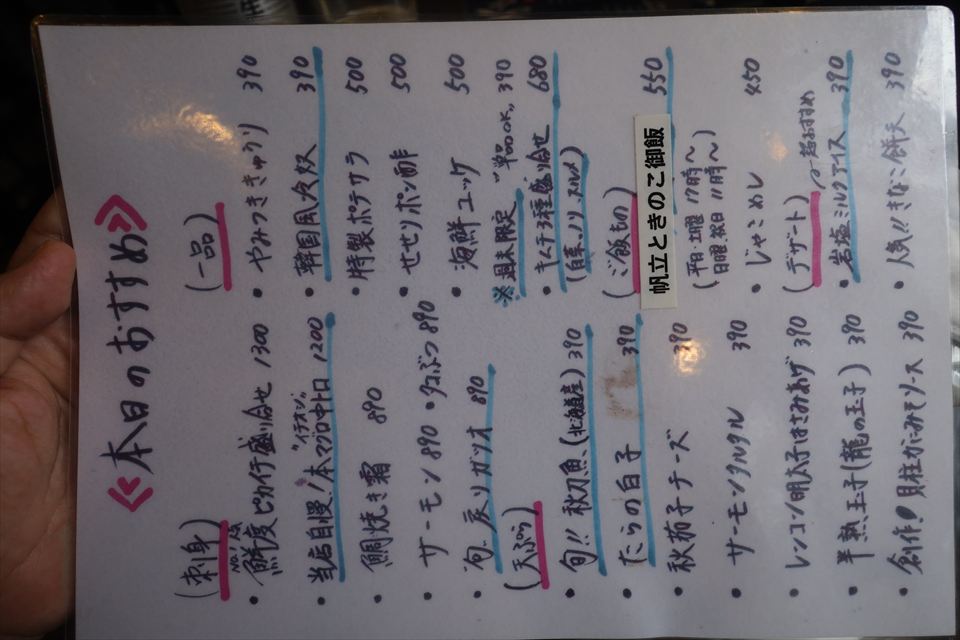 《本日のおすすめ》
(刺身)
No.1人気
・鮮度ピカイチ盛り合せ 1300
"イチオシ"
・当店自慢！本マグロ中トロ 1200
・鯛焼き霜 890
・サーモン 890 ・タコぶつ 890
・旬 戻りガツオ 890
(天ぷら)
・旬!! 秋刀魚 (北海道産) 390
・たらの白子 390
・秋茄子チーズ 390
・サーモンタルタル 390
・レンコン明太子はさみあげ 390
・半熟玉子(龍の玉子) 390
・創作! 貝柱かにみそソース 390
(一品)
・やみつききゅうり 390
・韓国風冷奴 390
・特製ポテサラ 500
・せせりポン酢 500
・海鮮ユッケ 500
※週末限定 "単品OK" 390
・キムチ3種盛り合せ 680
(白菜、ノリ、メルメ)
(ご飯もの)
帆立ときのこ御飯 550
(平日 土曜 17時〜
日曜 祝日 11時〜)
・じゃこめし 450
(デザート)
一超おすすめ
・岩塩ミルクアイス 390
・人気!! きなこ餅天 390